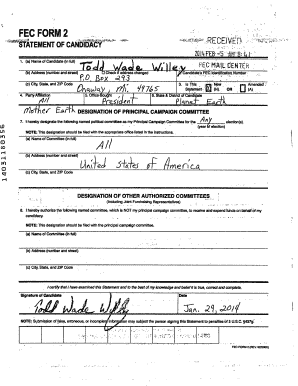 FEC FORM 2
STATEMENT OF CANDIDACY
RECEIVED
2014 FEB -5
FEC MAIL CENTER
1. (a) Name of Candidate (in full)
Todd Wade Willey
(b) Address (number and street) Check if address changed
P.O. Box 293
Candidate's FEC Identification Number
(c) City, State, and ZIP Code
Onaway Mi. 49765
3. Is This Statement New (N) OR Amended (A)
4. Party Affiliation
All
5. Office Sought
President
6. State & District of Candidate
Planet Earth
Mother Earth
DESIGNATION OF PRINCIPAL CAMPAIGN COMMITTEE
7. I hereby designate the following named political committee as my Principal Campaign Committee for the Any election(s).
(year of election)
NOTE: This designation should be filed with the appropriate office listed in the instructions.
(a) Name of Committee (in full)
All
(b) Address (number and street)
United States of America
(c) City, State, and ZIP Code
DESIGNATION OF OTHER AUTHORIZED COMMITTEES
(Including Joint Fundraising Representatives)
8. I hereby authorize the following named committee, which is NOT my principal campaign committee, to receive and expend funds on behalf of my
candidacy.
NOTE: This designation should be filed with the principal campaign committee.
(a) Name of Committee (in full)
(b) Address (number and street)
(c) City, State, and ZIP Code
I certify that I have examined this Statement and to the best of my knowledge and belief it is true, correct and complete.
Signature of Candidate
Todd Wade Willey
Date
Jan. 29, 2014
NOTE: Submission of false, erroneous, or incomplete information may subject the person signing this Statement to penalties of 2 U.S.C. §437g.
14031180356